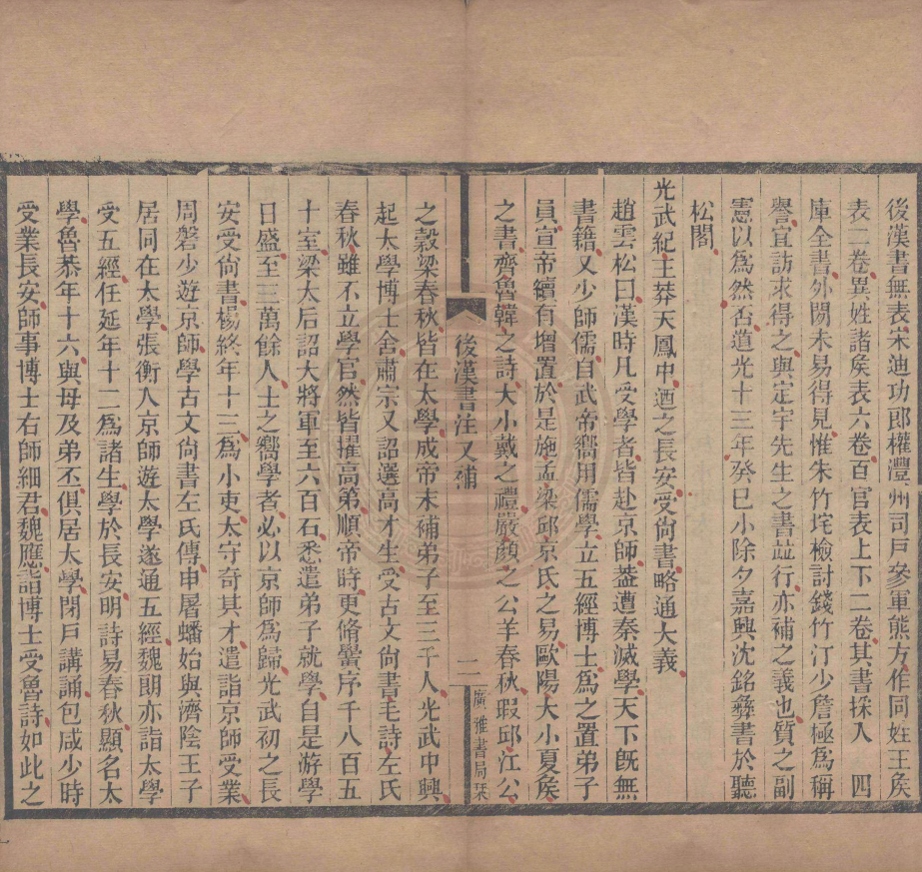 後漢書無表宋迪功郎權澧州司戶參軍熊方作同姓王矦
表二卷異姓諸矦表六卷百官表上下二卷其書採入四
庫全書外閒未易得見惟朱竹垞檢討錢竹汀少詹極爲稱
譽宜訪求得之與定宇先生之書竝行亦補之義也質之副
憲以爲然否道光十三年癸巳小除夕嘉興沈銘彝書於聽
松閣
光武紀王莽天鳳中迺之長安受尙書略通大義
趙雲松曰漢時凡受學者皆赴京師葢遭秦滅學天下旣無
書籍又少師儒自武帝嚮用儒學立五經博士爲之置弟子
員宣帝續有增置於是施孟梁邱京氏之易歐陽大小夏矦
之書齊魯韓之詩大小戴之禮嚴顏之公羊春秋瑕邱江公
後漢書注又補
二
廣雅書局栞
之穀梁春秋皆在太學成帝末補弟子至三千人光武中興
起太學博士舍肅宗又詔選高才生受古文尙書毛詩左氏
春秋雖不立學官然皆擢高弟順帝時更脩黌序千八百五
十室梁太后詔大將軍至六百石悉遣弟子就學自是游學
日盛至三萬餘人士之嚮學者必以京師爲歸光武初之長
安受尙書楊終年十三爲小吏太守奇其才遣詣京師受業
周磐少遊京師學古文尙書左氏傳申屠蟠始與濟陰王子
居同在太學張衡入京師遊太學遂通五經魏朗亦詣太學
受五經任延年十二爲諸生學於長安明詩易春秋顯名太
學魯恭年十六與母及弟丕俱居太學閉戶講誦包咸少時
受業長安師事博士右師細君魏應詣博士受魯詩如此之